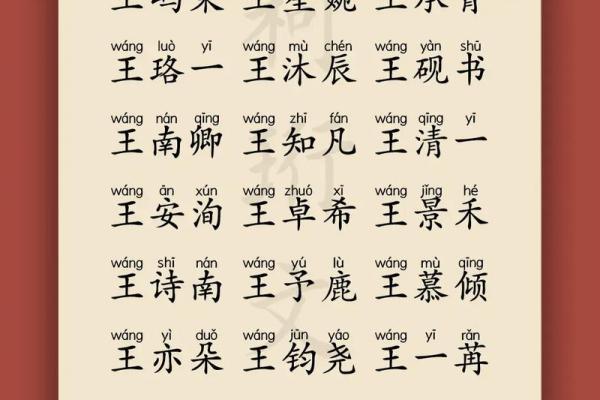 wáng luò yī wáng mù chén wáng yàn shū
王珞一 王沐辰 王砚书
wáng nán qīng wáng zhī fán wáng qīng yī
王南卿 王知凡 王清一
wáng ān xún wáng zhuó xī wáng jǐng hé
王安洵 王卓希 王景禾
wáng shī nán wáng yú lù wáng mù qīng
王诗南 王予鹿 王慕倾
wáng yì duǒ wáng jūn yáo wáng yī rǎn
王亦朵 王钧尧 王一苒